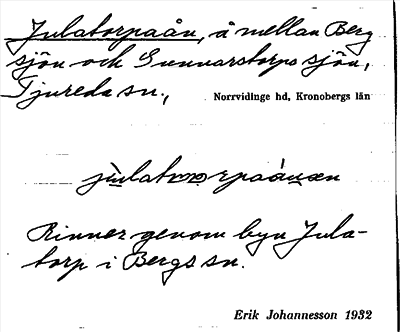 Julatorpaån, å mellan Berg
sjön och Gunnarstorps sjön,
Tjureda sn.,
Norrvidinge hd, Kronobergs län
julatorpaånen
Rinner genom byn Jula-
torp i Bergs sn.
Erik Johannesson 1932